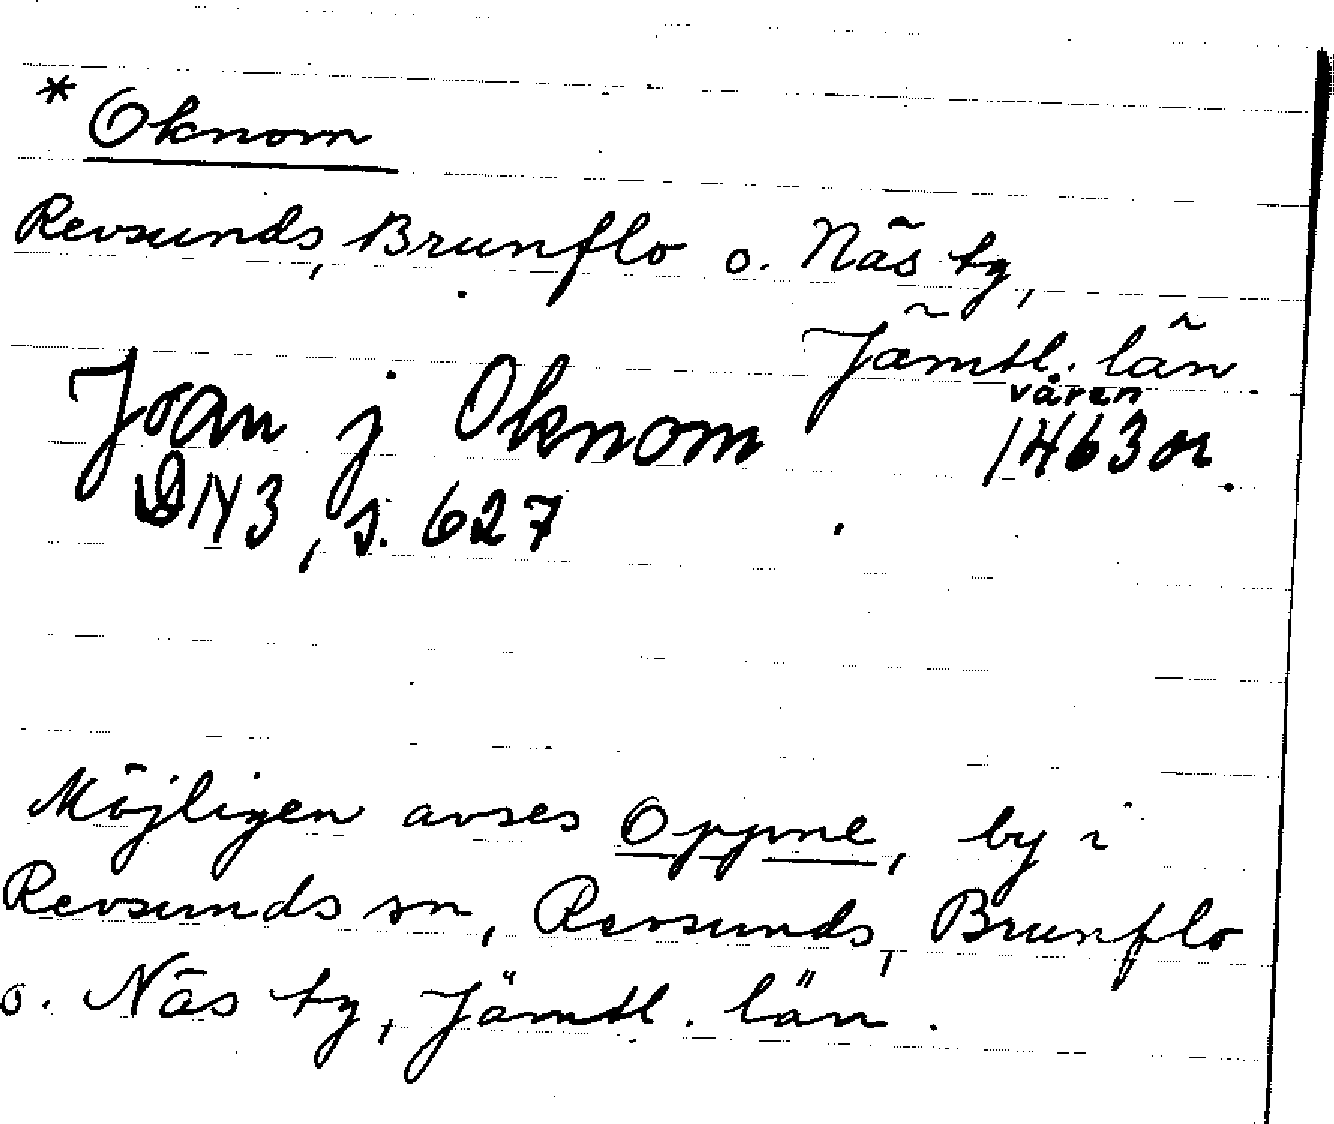 * Oknom
Revsunds, Brunflo o. Näs tg,
Jämtl. län.
Joan j Oknom våren 1463 or.
DN 3, s. 627
Möjligen avses Oppne, by i
Revsunds sn, Revsunds, Brunflo
o. Näs tg, Jämtl. län.